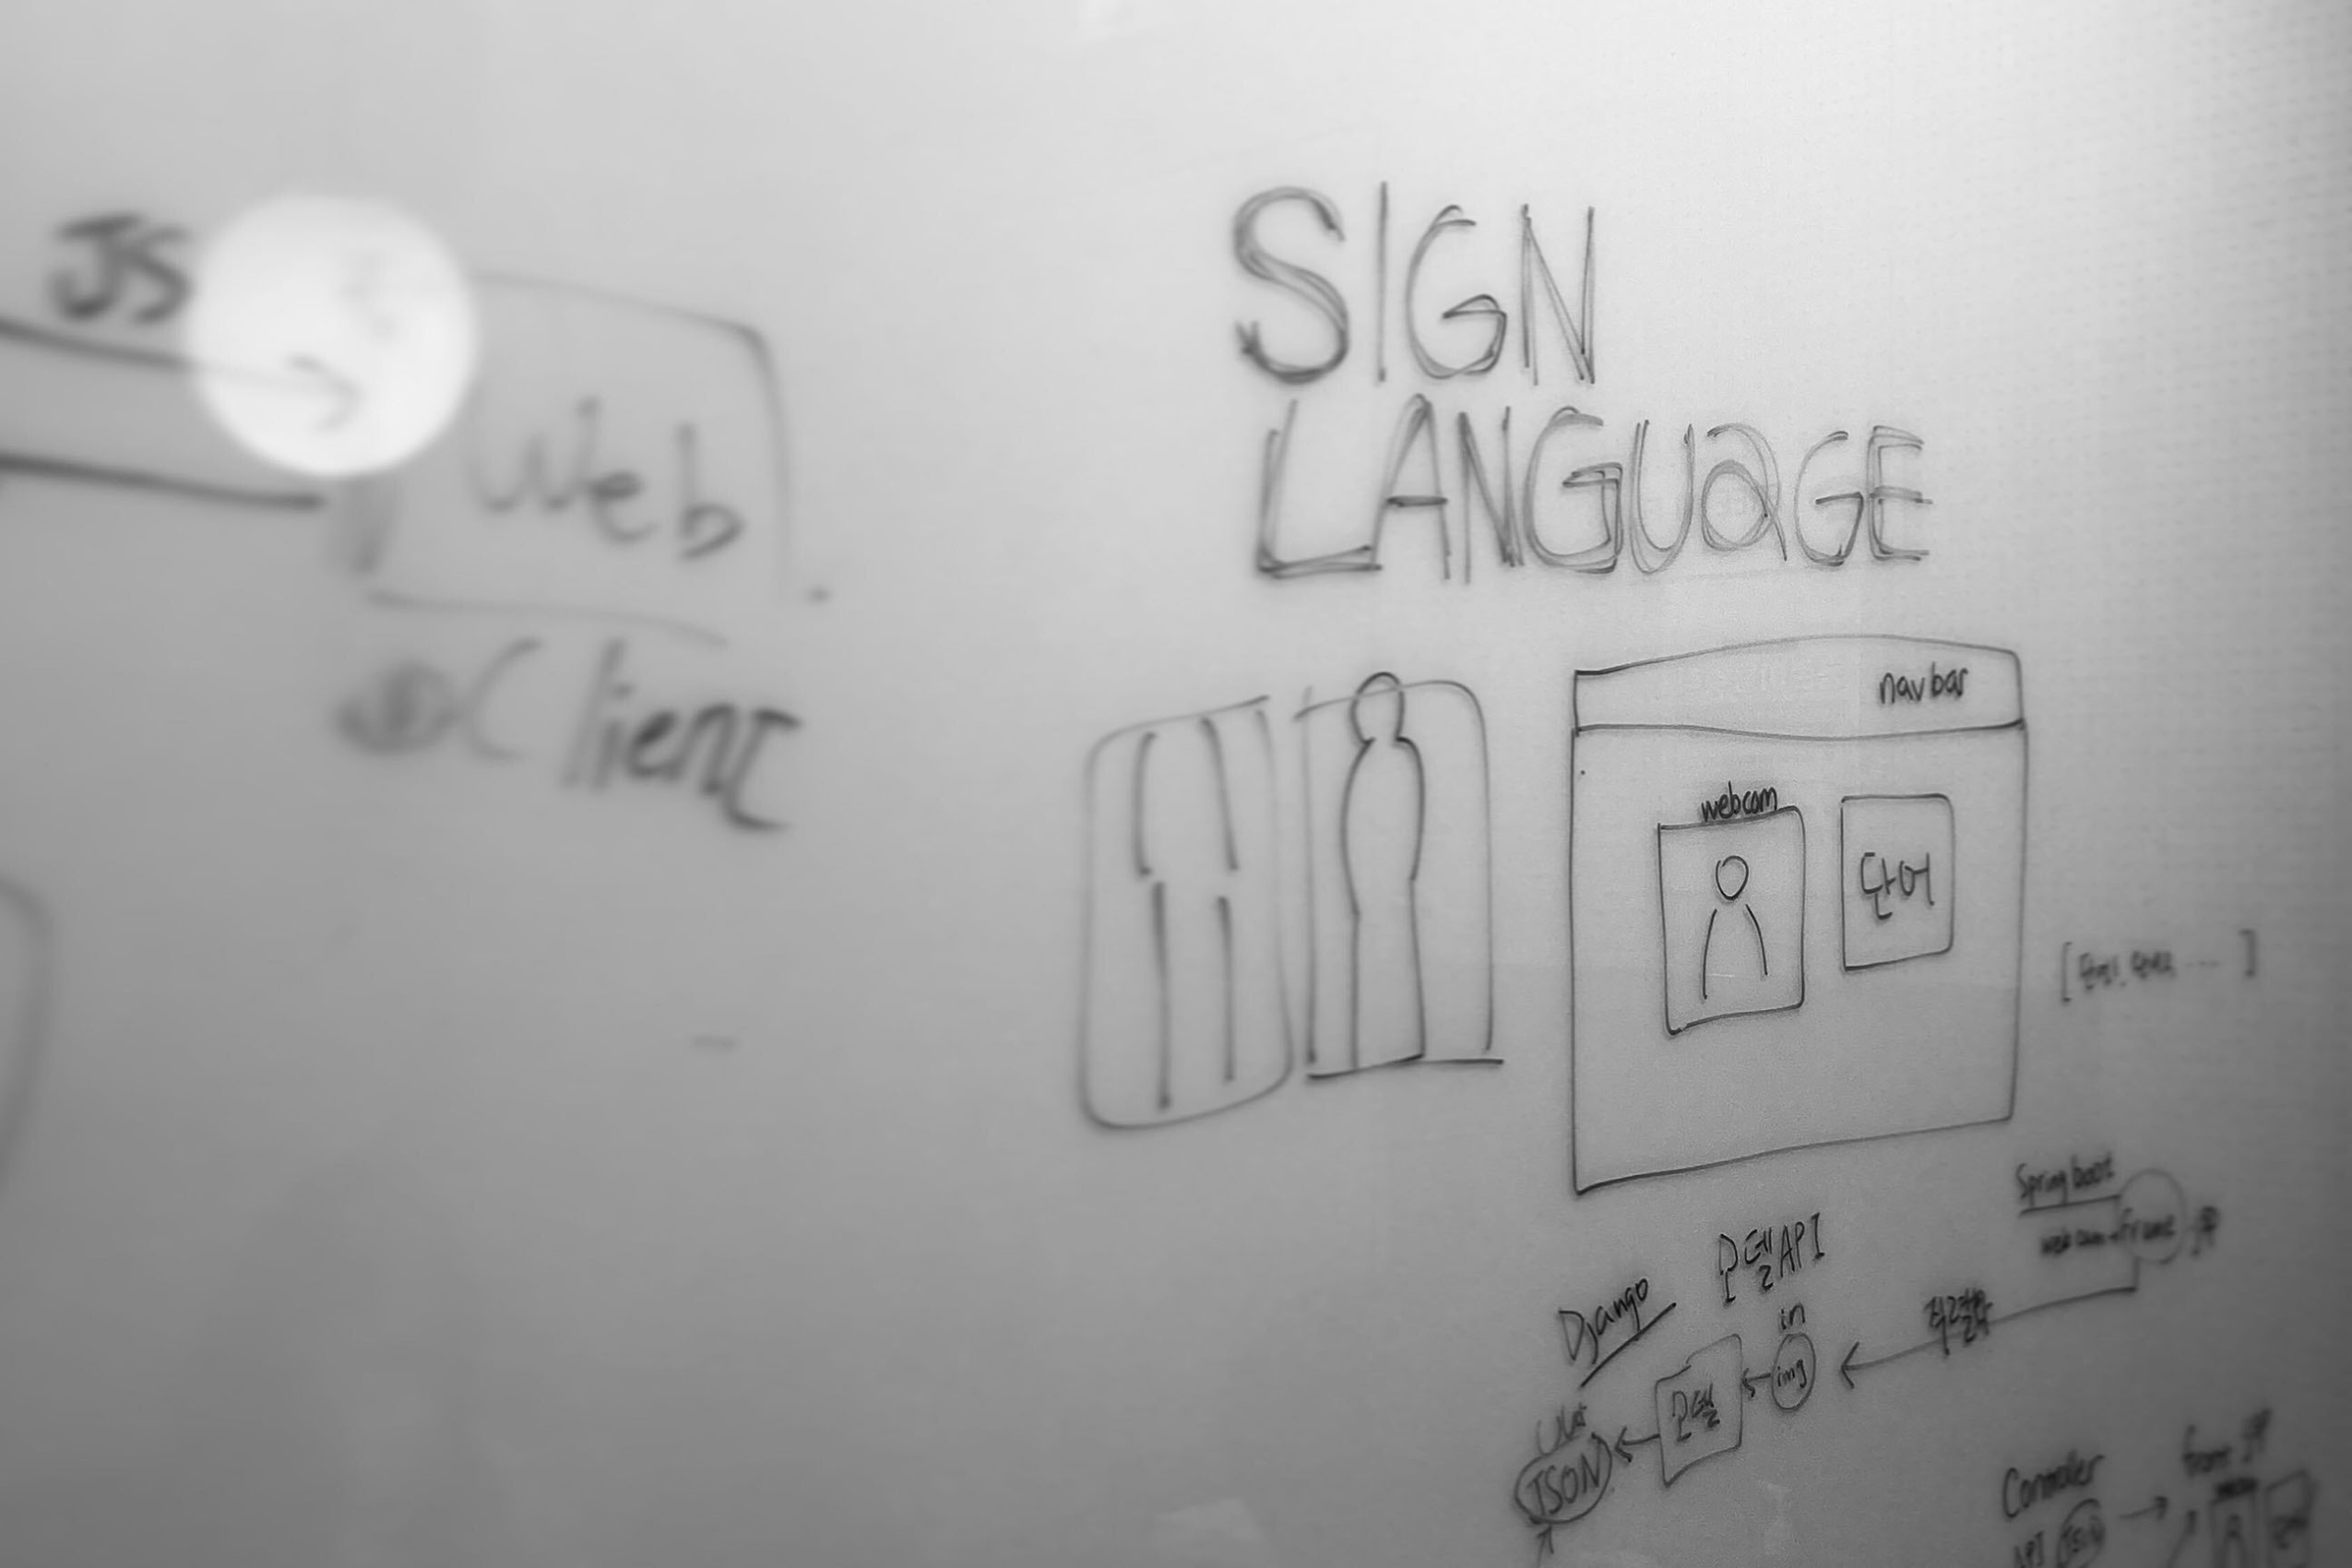 JS
Web
Client
SIGN
LANGUAGE
navbar
webcam
단어
Spring boot
frame
모델API
Django
in
img
모델
JSON
Controller
API JSON